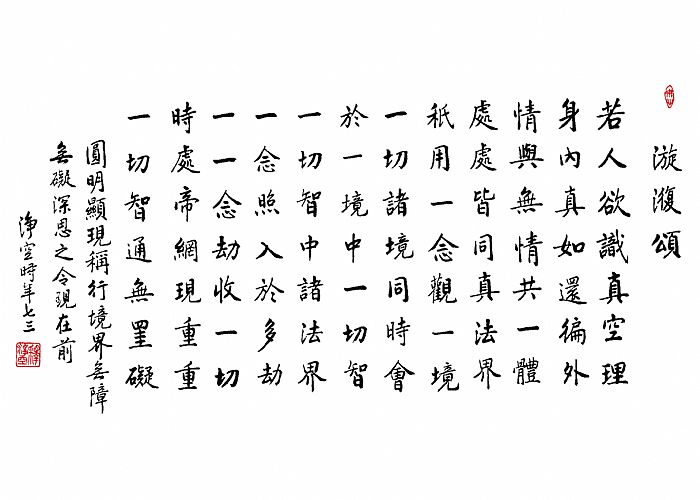 漩澓頌
若人欲識真空理
身內真如還徧外
情與無情共一體
處處皆同真法界
秖用一念觀一境
一切諸境同時會
於一境中一切智
一切智中諸法界
一念照入於多劫
一一念劫收一切
時處帝網現重重
一切智通無罣礙
圓明顯現稱行境界無障
無礙深思之令現在前
淨空時年七三